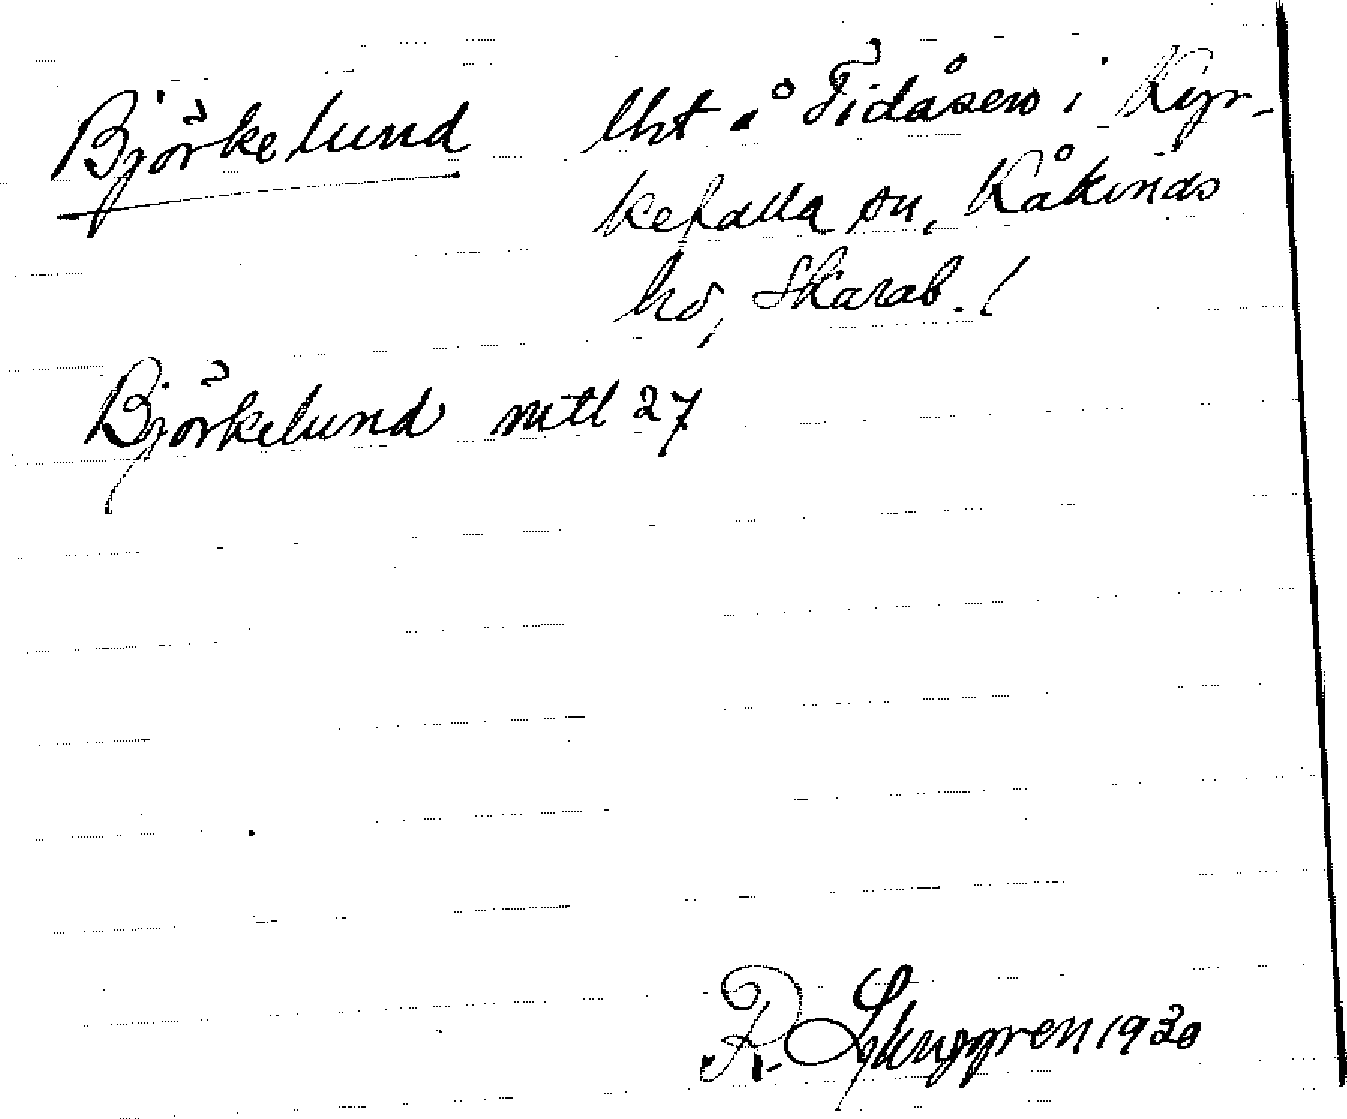 Björkelund lht å Tidåsen i Kyr-
kefalla sn, Kåkinds
hd, Skarab. l
Björkelund mtl 27
R. Ljunggren 1930